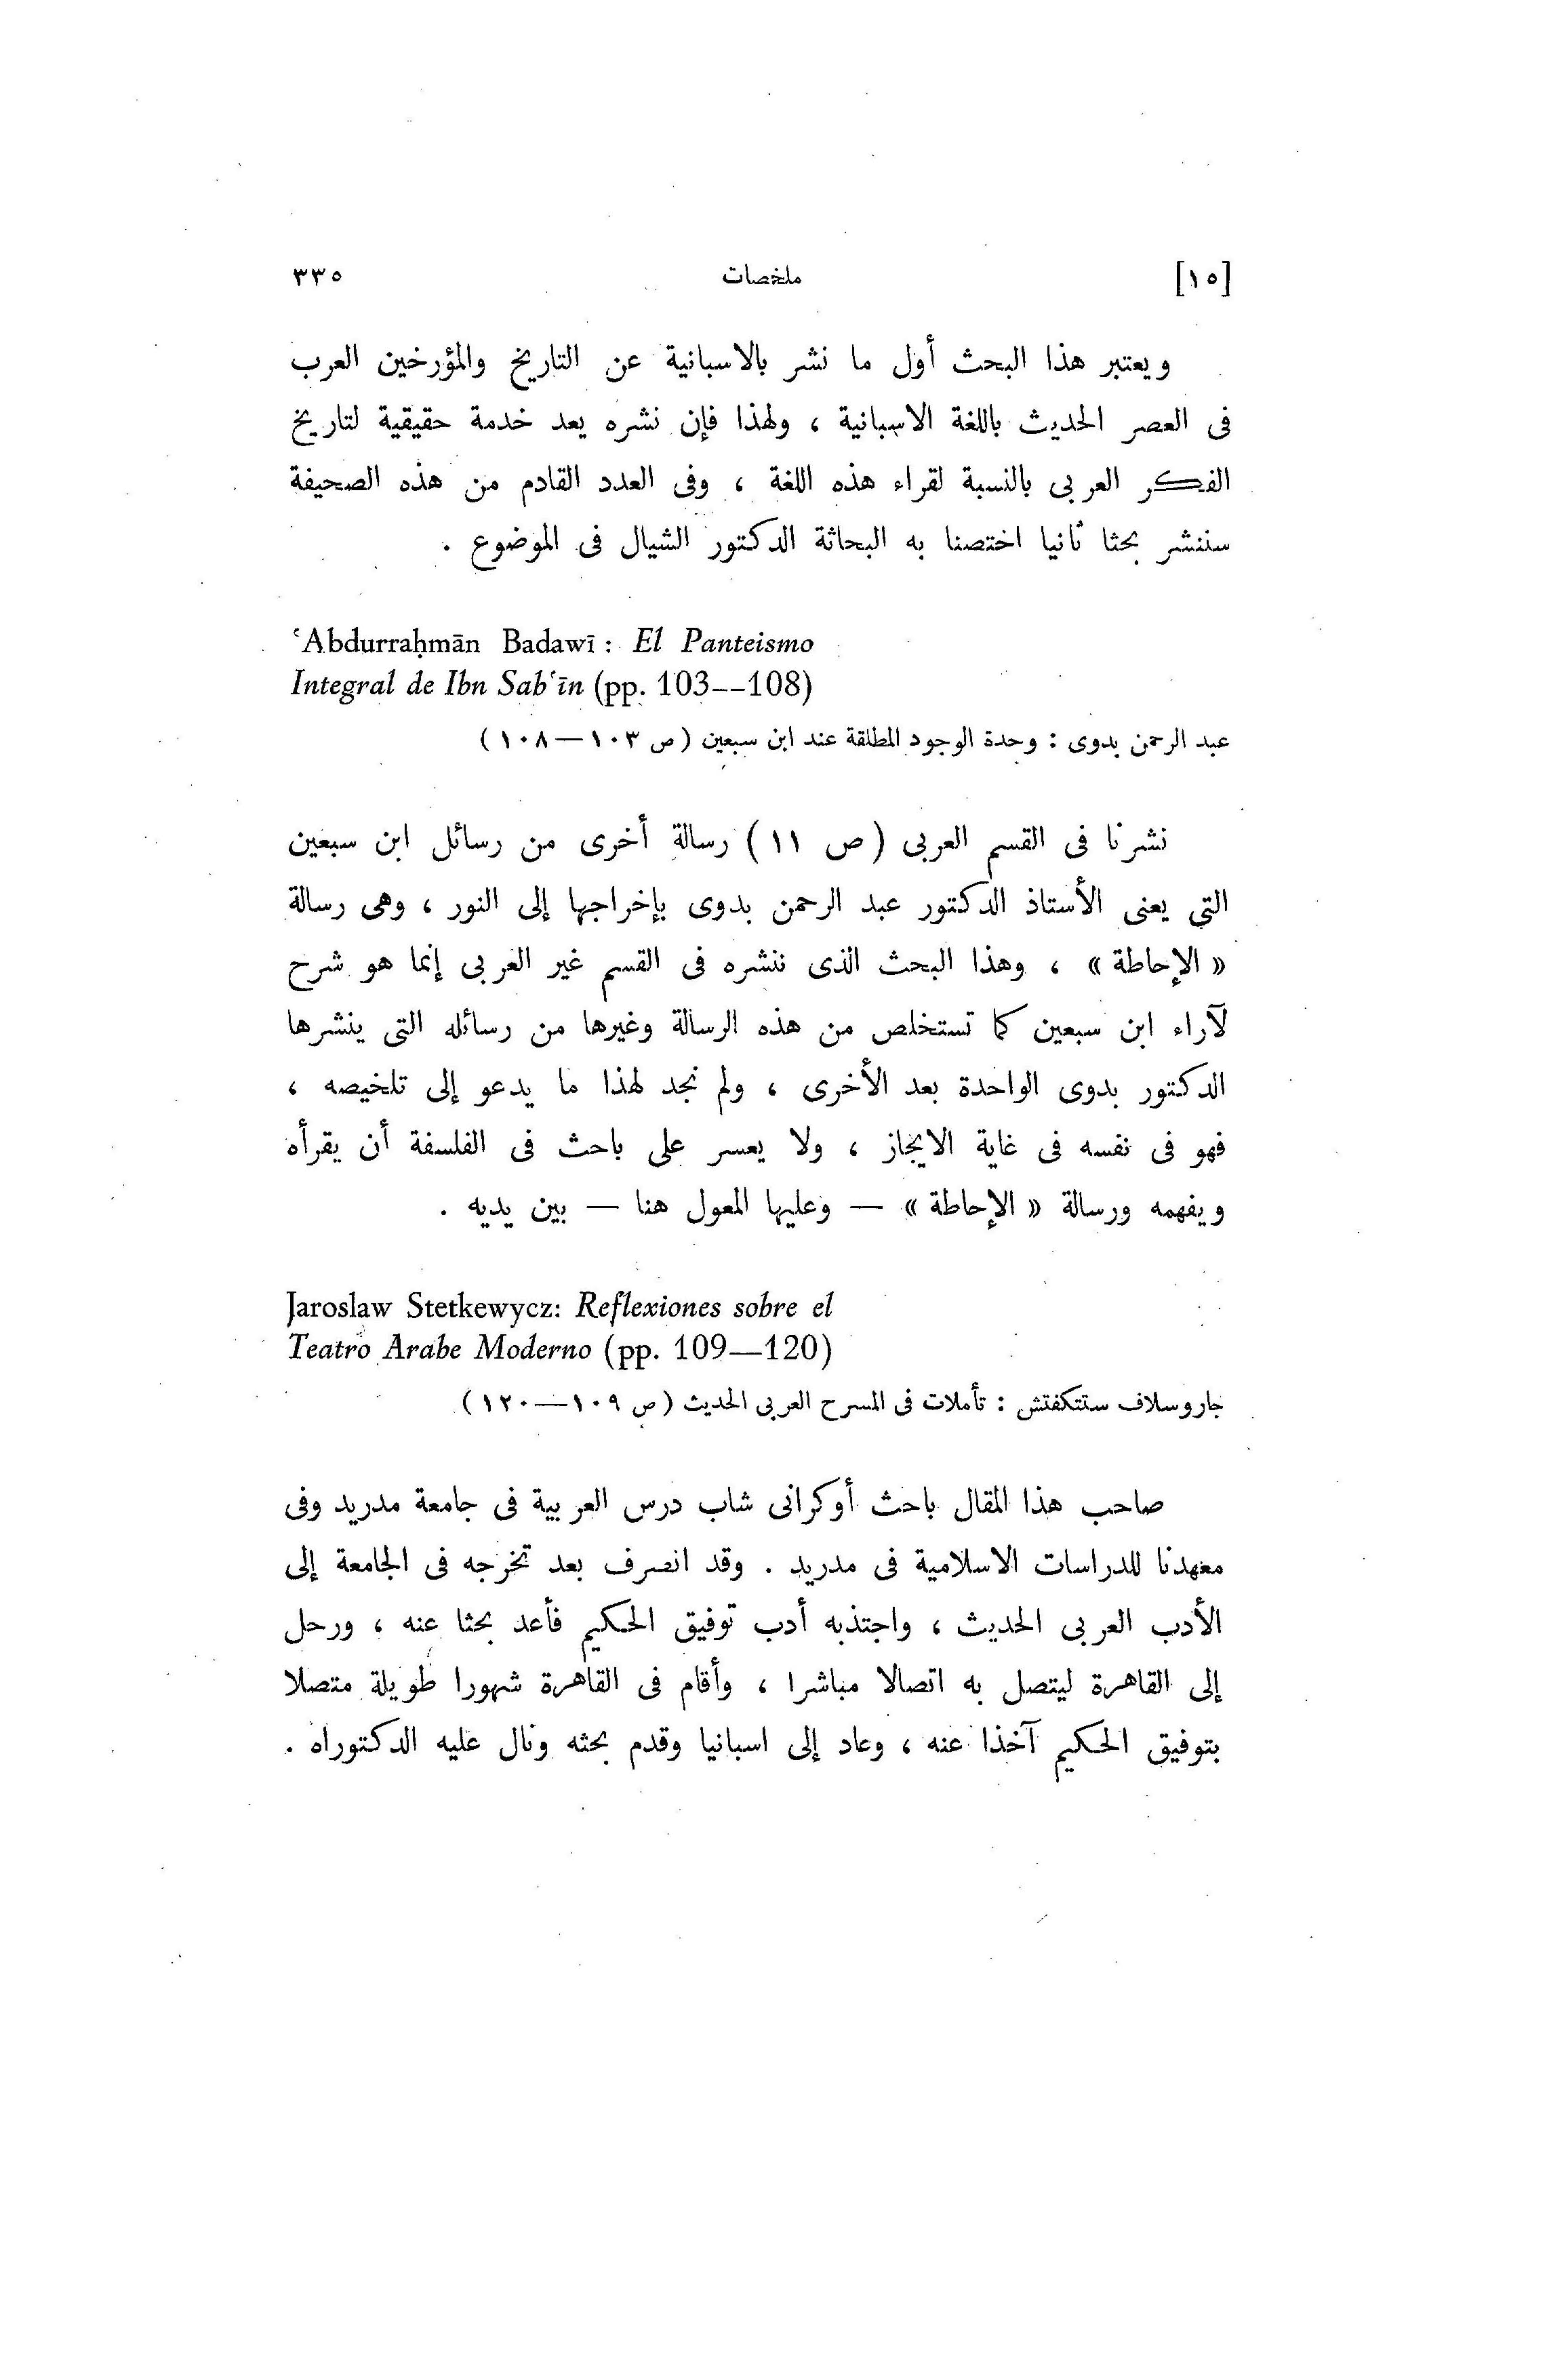 [١٥] ملخصات ٣٣٥
ويعتبر هذا البحث أول ما نشر بالاسبانية عن التاريخ والمؤرخين العرب
فى العصر الحديث باللغة الاسبانية ، ولهذا فإن نشره يعد خدمة حقيقية لتاريخ
الفكر العربى بالنسبة لقراء هذه اللغة ، وفى العدد القادم من هذه الصحيفة
سننشر بحثا ثانيا اختصنا به البحاثة الدكتور الشيال فى الموضوع .
ʿAbdurraḥmān Badawī : El Panteismo
Integral de Ibn Sabʿīn (pp. 103--108)
عبد الرحمن بدوى : وحدة الوجود المطلقة عند ابن سبعين ( ص ١٠٣—١٠٨ )
نشرنا فى القسم العربى ( ص ١١ ) رسالة أخرى من رسائل ابن سبعين
التي يعنى الأستاذ الدكتور عبد الرحمن بدوى بإخراجها إلى النور ، وهى رسالة
« الإحاطة » ، وهذا البحث الذى ننشره فى القسم غير العربى إنما هو شرح
لآراء ابن سبعين كما تستخلص من هذه الرسالة وغيرها من رسائله التى ينشرها
الدكتور بدوى الواحدة بعد الأخرى ، ولم نجد لهذا ما يدعو إلى تلخيصه ،
فهو فى نفسه فى غاية الايجاز ، ولا يعسر على باحث فى الفلسفة أن يقرأه
ويفهمه ورسالة « الإحاطة » — وعليها المعول هنا — بين يديه .
Jaroslaw Stetkewycz: Reflexiones sobre el
Teatro Arabe Moderno (pp. 109—120)
جاروسلاف ستتكفتش : تأملات فى المسرح العربى الحديث ( ص ١٠٩—١٢٠ )
صاحب هذا المقال باحث أوكرانى شاب درس العربية فى جامعة مدريد وفى
معهدنا للدراسات الاسلامية فى مدريد . وقد انصرف بعد تخرجه فى الجامعة إلى
الأدب العربى الحديث ، واجتذبه أدب توفيق الحكيم فأعد بحثا عنه ، ورحل
إلى القاهرة ليتصل به اتصالا مباشرا ، وأقام فى القاهرة شهورا طويلة متصلا
بتوفيق الحكيم آخذا عنه ، وعاد إلى اسبانيا وقدم بحثه ونال عليه الدكتوراه .